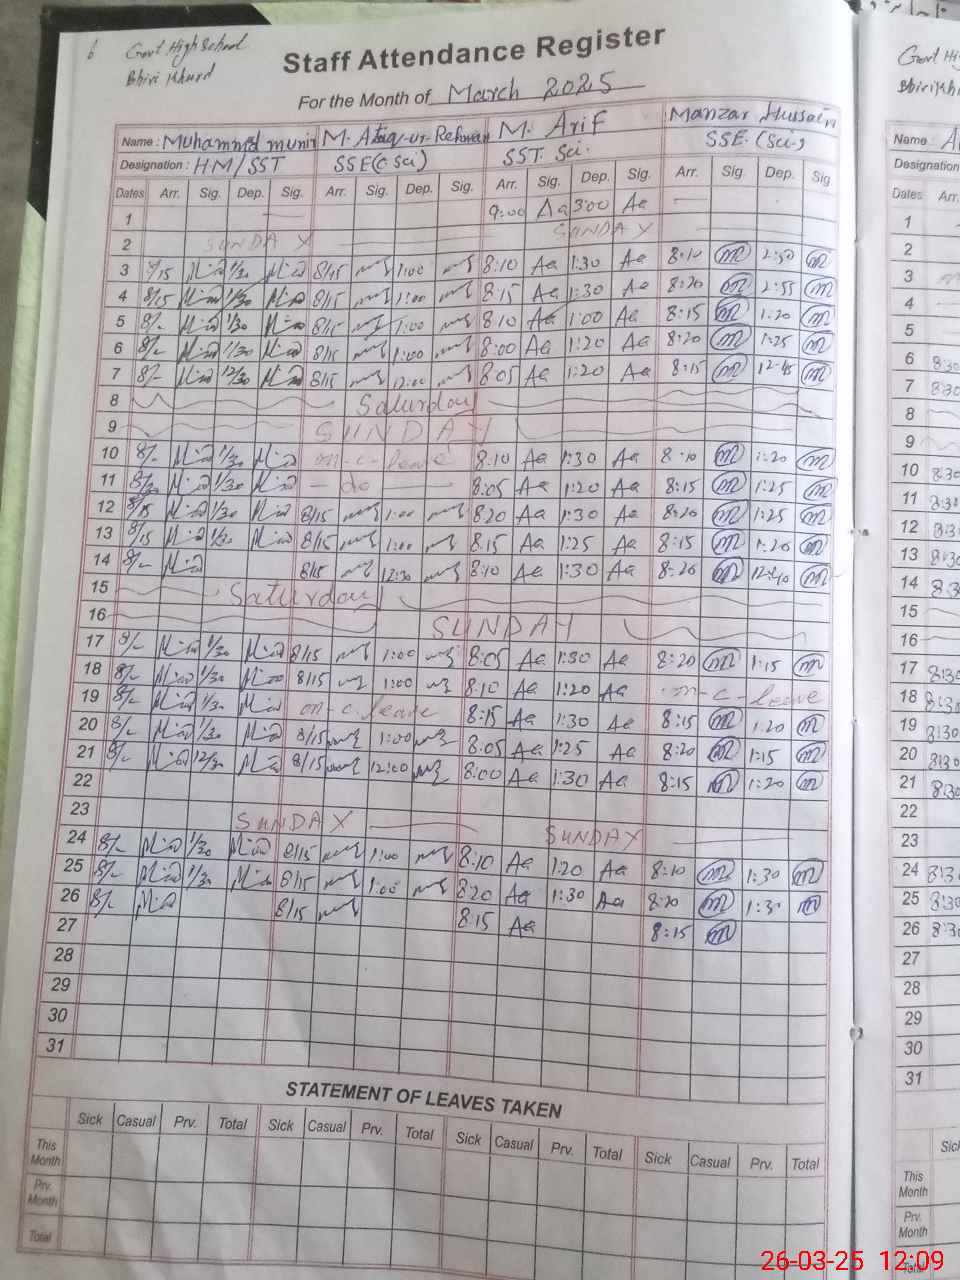 6 Govt High School
Bhiri Khurd
Staff Attendance Register
For the Month of March 2025
Name: Muhammad munir M. Ataq-ur-Rehman M. Arif Manzar Hussain
Designation: HM/SST SSE(C.Sci) SST. Sci. SSE. (Sci.)
Dates Arr. Sig. Dep. Sig. Arr. Sig. Dep. Sig. Arr. Sig. Dep. Sig. Arr. Sig. Dep. Sig
1 9:00 Aa 3:00 Aa
2 SUNDAY SUNDAY
3 8/15 1:00 8:10 Aa 1:30 Aa 8:10 m m
4 8/15 1/30 8/15 1:00 8:15 Aa 1:30 Aa 8:20 m 2:55 m
5 8/- 1/30 8/15 1:00 8:10 Aa 1:00 Aa 8:15 m 1:20 m
6 8/- 1/30 8/15 1:00 8:00 Aa 1:20 Aa 8:20 m 1:25 m
7 8/- 12/30 8/15 12:00 8:05 Aa 1:20 Aa 8:15 m 12:45 m
8 Saturday
9 SUNDAY
10 8/- 1/30 on-c-leave 8:10 Aa 1:30 Aa 8:10 m 1:20 m
11 1/30 - do - 8:05 Aa 1:20 Aa 8:15 m 1:25 m
12 8/15 1/30 8/15 1:00 8:20 Aa 1:30 Aa 8:20 m 1:25 m
13 8/15 1/30 8/15 1:00 8:15 Aa 1:25 Aa 8:15 m 1:20 m
14 8/- 8/15 12:30 8:10 Aa 1:30 Aa 8:20 m 12:40 m
15 Saturday
16 SUNDAY
17 8/- 1/30 8/15 1:00 8:05 Aa 1:30 Aa 8:20 m 1:15 m
18 8/- 1/30 8/15 1:00 8:10 Aa 1:20 Aa on-c-leave
19 8/- 1/30 on-c.leave 8:15 Aa 1:30 Aa 8:15 m 1:20 m
20 8/- 1/30 8/15 1:00 8:05 Aa 1:25 Aa 8:20 m 1:15 m
21 8/- 12/30 8/15 12:00 8:00 Aa 1:30 Aa 8:15 m 1:20 m
22
23 SUNDAY SUNDAY
24 8/- 1/30 8/15 1:00 8:10 Aa 1:20 Aa 8:10 m 1:30 m
25 8/- 1/30 8/15 1:00 8:20 Aa 1:30 Aa 8:20 m 1:30 m
26 8/- 8/15 8:15 Aa 8:15 m
27
28
29
30
31
STATEMENT OF LEAVES TAKEN
Sick Casual Prv. Total Sick Casual Prv. Total Sick Casual Prv. Total Sick Casual Prv. Total
This Month
Prv. Month
Total
Govt Hi
Bhiri Kh
Name: A
Designation
Dates Arr.
1
2
3
4
5
6 8:30
7 8:30
8
9
10 8:30
11 8:30
12 8:30
13 8:30
14 8:30
15
16
17 8:30
18 8:30
19 8:30
20 8:30
21 8:30
22
23
24 8:30
25 8:30
26 8:30
27
28
29
30
31
Sic
This Month
Prv. Month
Total
26-03-25 12:09